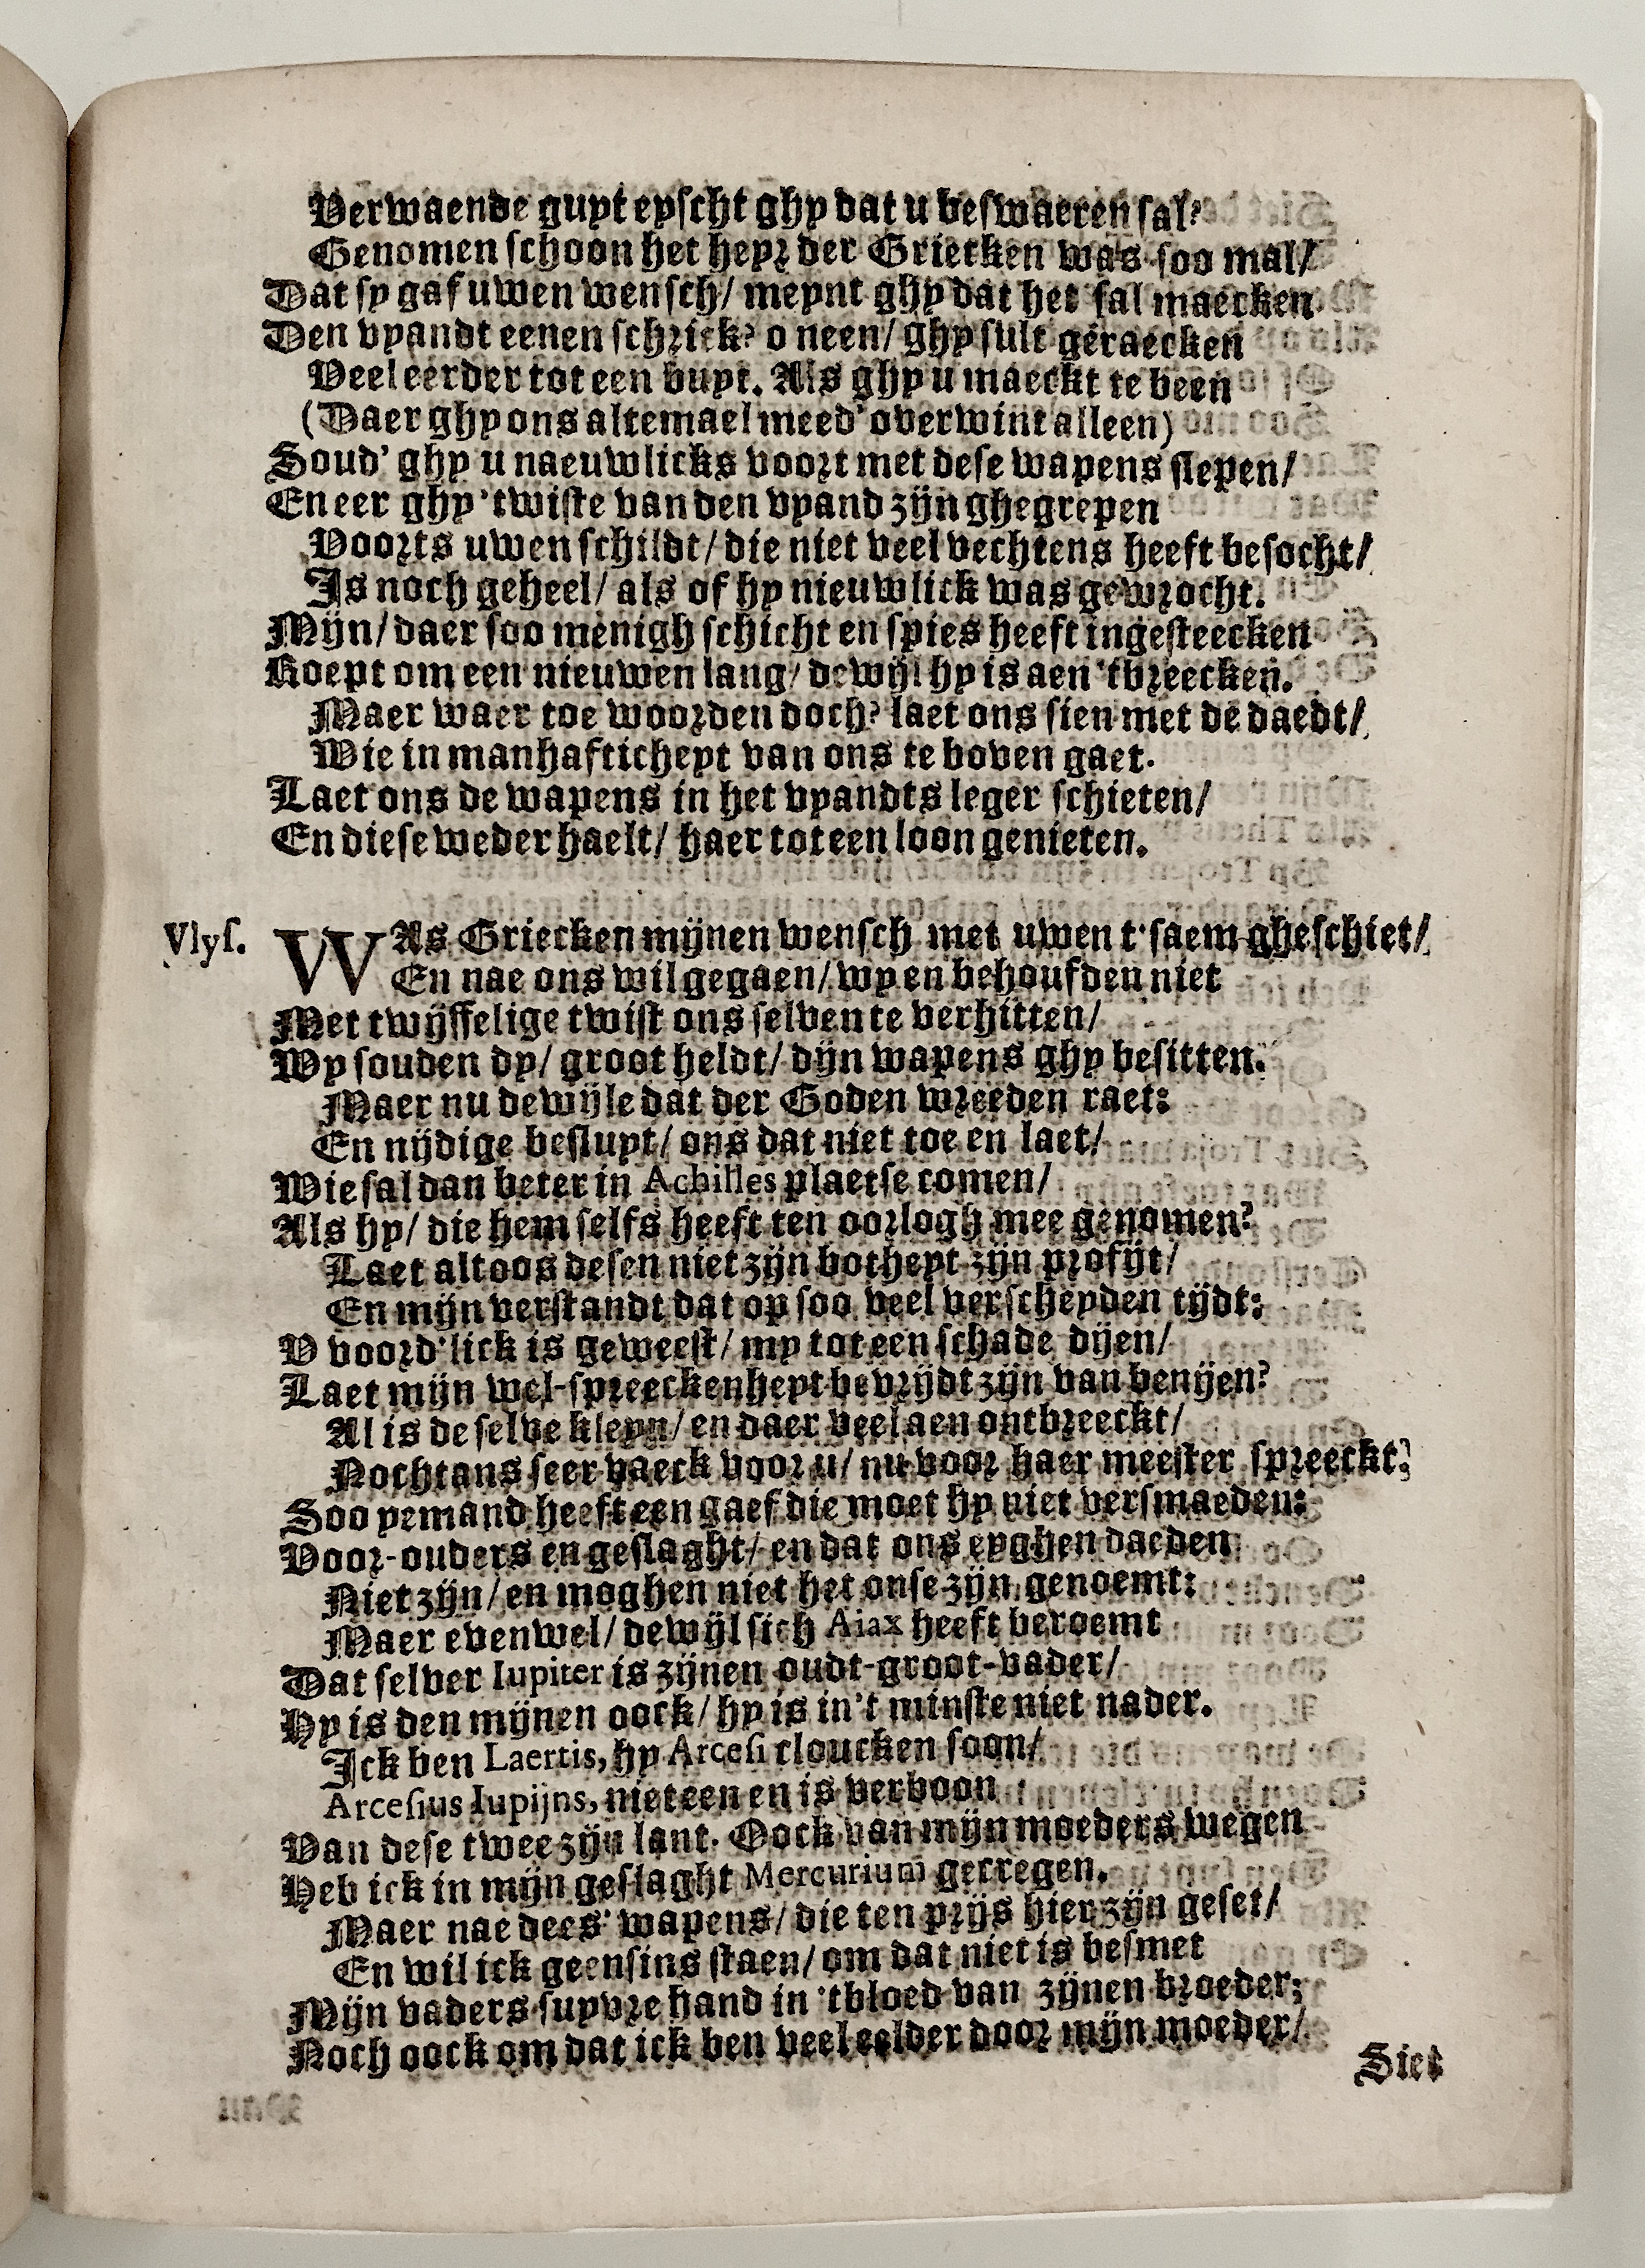 Verwaende guyt eyscht ghy dat u beswaeren sal?
Genomen schoon het heyr der Griecken was soo mal/
Dat sy gaf uwen wensch/ meynt ghy dat het sal maecken
Den vyandt eenen schrick? o neen/ ghy sult geraecken
Veel eerder tot een buyt. Als ghy u maeckt te been
(Daer ghy ons altemael meed' overwint alleen)
Soud' ghy u naeuwlicks voort met dese wapens slepen/
En eer ghy 'twiste van den vyand zijn ghegrepen
Voorts uwen schildt/ die niet veel vechtens heeft besocht/
Is noch geheel/ als of hy nieuwlick was gewrocht.
Mijn/ daer soo menigh schicht en spies heeft ingesteecken
Roept om een nieuwen lang/ dewijl hy is aen 'tbreecken.
Maer waer toe woorden doch? laet ons sien met de daedt/
Wie in manhafticheyt van ons te boven gaet.
Laet ons de wapens in het vyandts leger schieten/
En die se weder haelt/ haer tot een loon genieten.
Vlys. WAs Griecken mijnen wensch met uwen t'saem gheschiet/
En nae ons wil gegaen/ wy en behoufden niet
Met twijffelige twist ons selven te verhitten/
Wy souden dy/ groot heldt/ dijn wapens ghy besitten.
Maer nu dewijle dat der Goden wreeden raet:
En nijdige besluyt/ ons dat niet toe en laet/
Wie sal dan beter in Achilles plaetse comen/
Als hy/ die hem selfs heeft ten oorlogh mee genomen?
Laet altoos desen niet zijn botheyt zijn profijt/
En mijn verstandt dat op soo veel verscheyden tijdt:
V voord'lick is geweest/ my tot een schade dijen/
Laet mijn wel-spreeckenheyt bevrijdt zijn van benijen?
Al is de selve kleyn/ en daer veel aen ontbreeckt/
Nochtans seer vaeck voor u/ nu voor haer meester spreeckt.
Soo yemand heeft een gaef die moet hy niet versmaeden:
Voor-ouders en geslaght/ en dat ons eyghen daeden
Niet zijn/ en moghen niet het onse zijn genoemt:
Maer evenwel/ dewijl sich Aiax heeft beroemt
Dat selver Iupiter is zijnen oudt-groot-vader/
Hy is den mijnen oock/ hy is in't minste niet nader.
Ick ben Laertis, hy Arcesi cloucken soon/
Arcesius Iupijns, niet een en is verboon
Van dese twee zijn lant. Oock van mijn moeders wegen
Heb ick in mijn geslaght Mercurium gecregen.
Maer nae dees' wapens/ die ten prijs hier zijn geset/
En wil ick geensins staen/ om dat niet is besmet
Mijn vaders suyvre hand in 'tbloed van zijnen broeder;
Noch oock om dat ick ben veel eelder door mijn moeder/
Siet